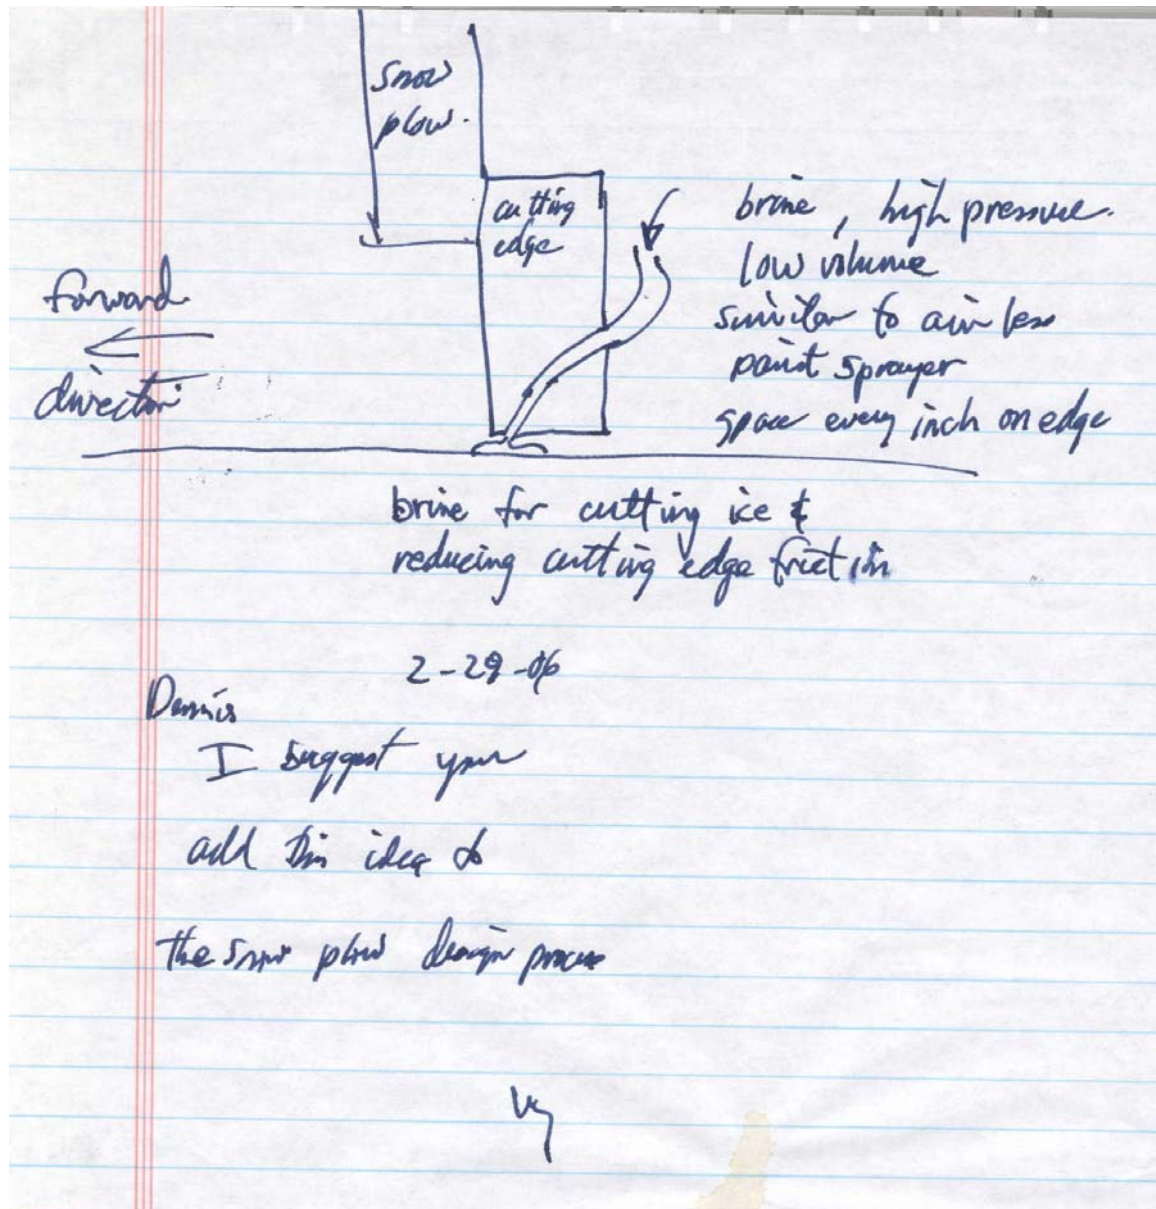 snow
plow.
cutting
edge
brine, high pressure.
low volume
similar to air less
paint sprayer
space every inch on edge
forward
direction
brine for cutting ice &
reducing cutting edge friction
2-29-06
Dennis
I suggest you
add this idea to
the snow plow design process